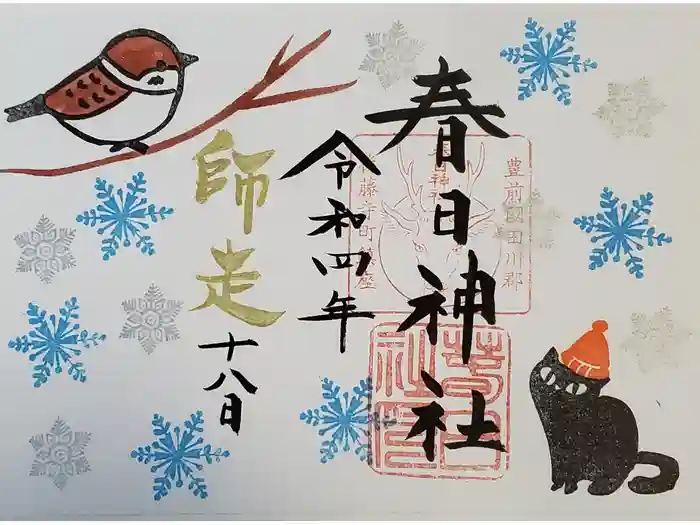 春日神社
豊前國田川郡
春日神社
令和四年
師走
十八日